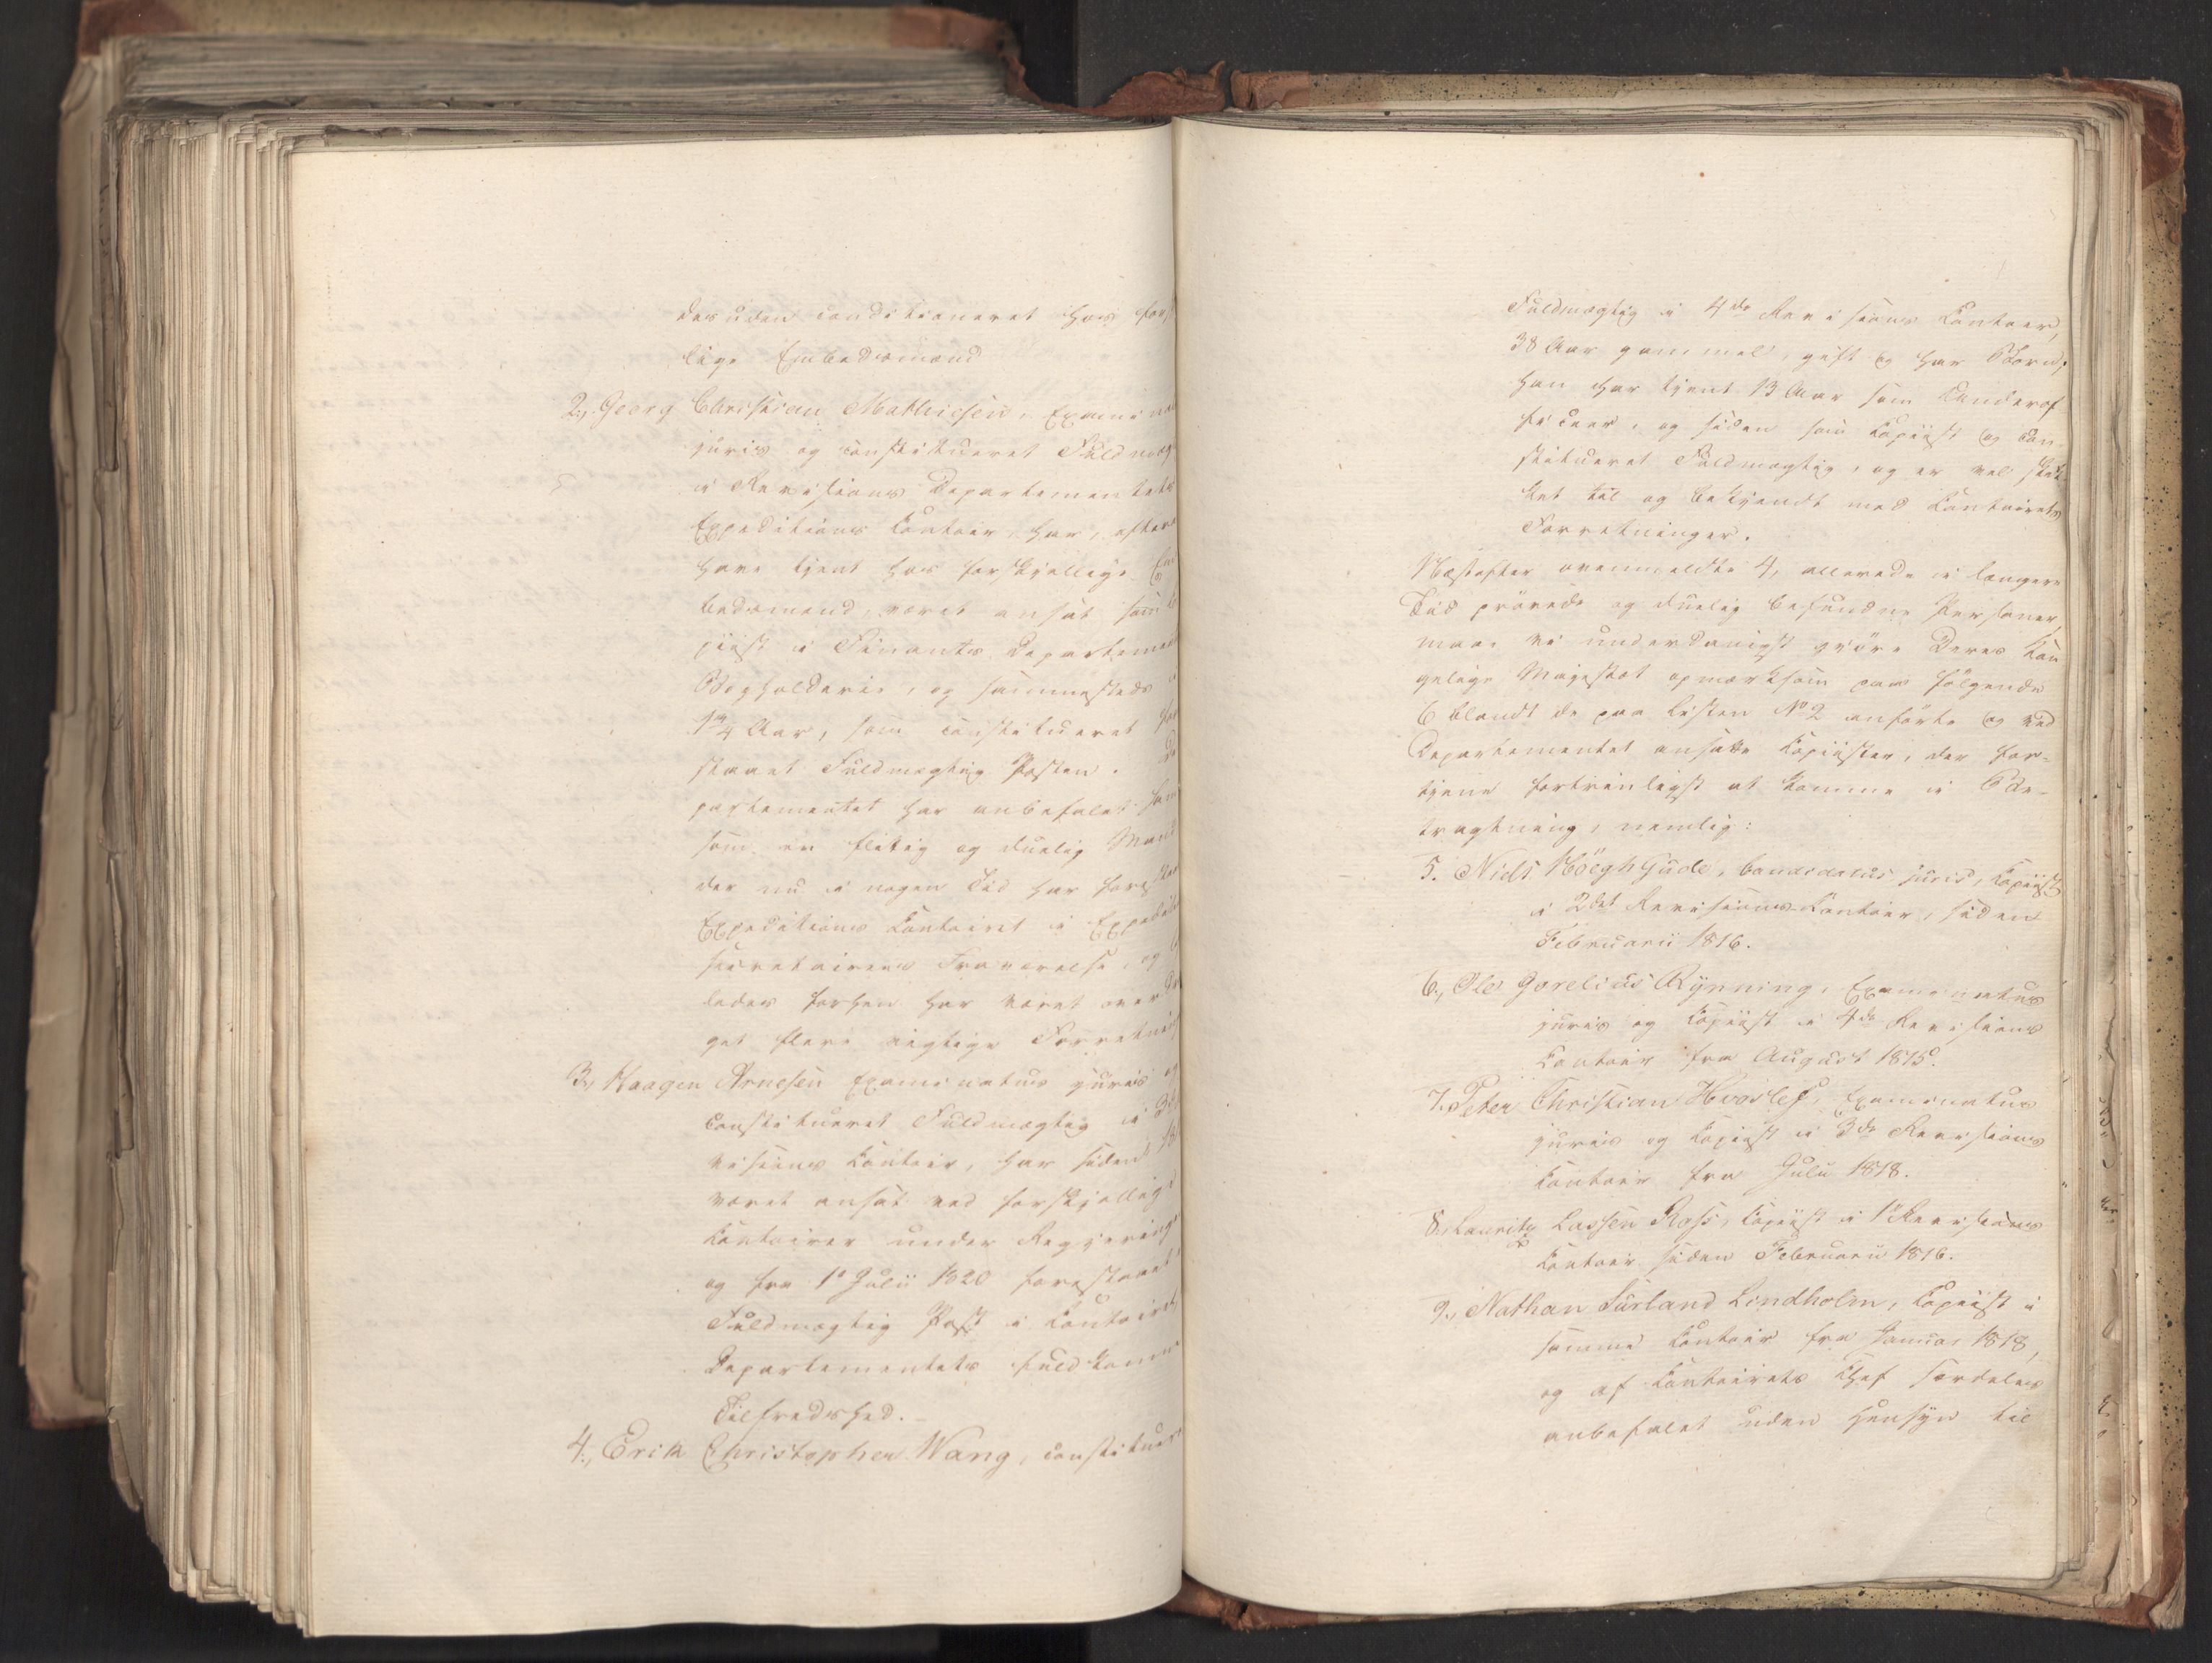 desuden conditioneret hos for
lige Embedsmænd
2., Georg Christian Mathiesen, Examina
juris og constitueret Fuldmæg
i Revisions Departementets
Expeditions Contoir, har, efter
have tjent hos forskjellige Em
bedsmænd, været ansat som Co
piist i Finants Departement
Bogholderie, og sammesteds i
1¾ Aar, som constitueret fore
staaet Fuldmægtig Posten. De
partementet har anbefalet ham
som en flittig og duelig Mand
der nu i nogen Tid har forestaaet
Expeditions Contoiret i Expedit
secretairens Fraværelse, og
ledes forhen har været overdra
get flere vigtige Forretning
3., Haagen Arnesen Examinatus juris og
constitueret Fuldmægtig i 3die
visions Contoir, har siden 18
været ansat ved forskjellige
Contoirer under Regjering
og fra 1ste Julii 1820 forestaaet
Fuldmægtig Post i Contoiret,
Departementets fuldkomne
Tilfredshed.
4., Erik Christopher Wang, constituer
Fuldmægtig i 4de Revisions Contoir,
38 Aar gammel, gift og har Børn;
han har tjent 13 Aar som Underof
ficeer, og siden som Copiist og con-
stitueret Fuldmægtig, og er vel skik
ket til og bekjendt med Contoirets
Forretninger.
Næstefter ovenmeldte 4, allerede i længere
Tid prøvede og duelig befundne Personer,
maae vi underdanigst gjøre Deres Kon
gelige Majestæt opmærksom paa følgende
6 blandt de paa Listen No 2 anførte og ved
Departementet ansatte Copiister, der for-
tjene fortrinligst at komme i Be-
tragtning, nemlig:
5. Niels Höegh Gude, Candidatus juris, Copiist
i 2det Revisions-Contoir, siden
Februarii 1816.
6., Ole Gorelius Rynning, Examinatus
juris og Copiist i 4de Revisions
Contoir fra August 1815.
7. Peter Christian Hvoslef, Examinatus
juris og Copiist i 3die Revisions
Contoir fra Julii 1818.
8., Lauritz Lassen Ross, Copiist i 1ste Revisions
Contoir siden Februarii 1816.
9., Nathan Furland Lindholm, Copiist i
samme Contoir fra Januar 1818,
og af Contoirets Chef særdeles
anbefalet uden Hensyn til